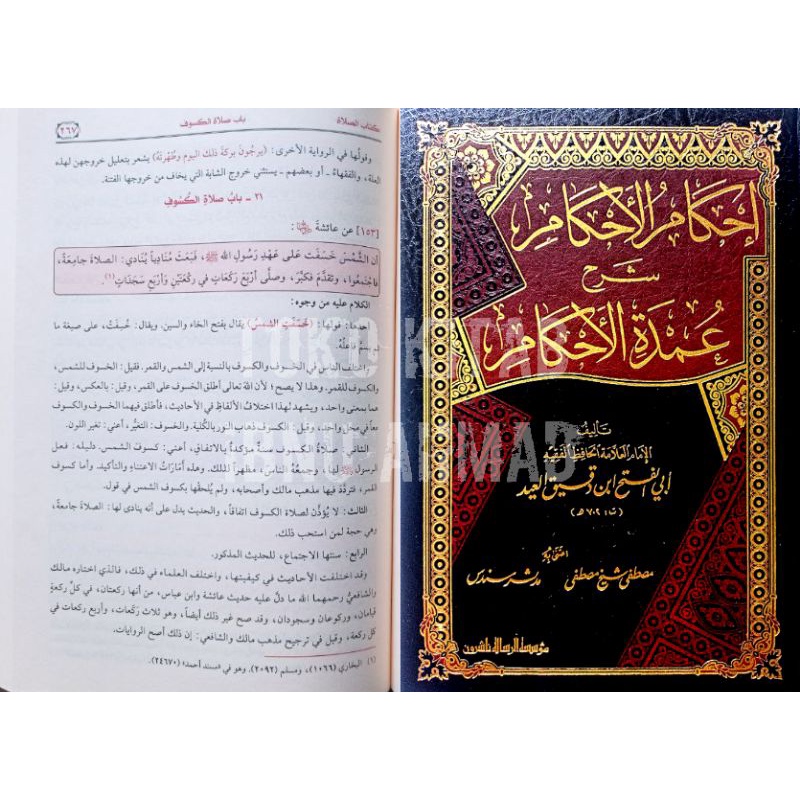 كتاب الصلاة
باب صلاة الكسوف
٢٦٧
وقولُها في الرواية الأخرى: (يرجُونَ بركةَ ذلك اليوم وطُهْرتَهُ) يشعر بتعليل خروجهن لهذه
العلة، والفقهاءُ ـ أو بعضهم ـ يستثني خروج الشابة التي يخاف من خروجها الفتنة.
٢٦ ـ بابُ صلاةِ الكُسُوفِ
[١٥٣] عن عائشةَ ﵂:
أن الشَّمْسَ خَسَفَت عَلى عَهْدِ رَسُولِ اللهِ ﷺ، فَبَعَثَ مُنَادِياً يُنَادي: الصلاةَ جامِعَةً،
فاجْتمعُوا، وتقدَّمَ فكبَّرَ، وصلَّى أرْبَعَ رَكعَاتٍ في رَكْعَتَيْنِ وَأرْبَعِ سَجَدَاتٍ(١).
الكلام عليه من وجوه:
أحدها: قولها: (خَسَفَتِ الشمس) يقال بفتح الخاء والسين. ويقال: خُسِفَتْ، على صيغة ما
لم يسمَّ فاعلُهُ.
واختلف الناس في الخسوف والكسوف بالنسبة إلى الشمس والقمر. فقيل: الخسوف للشمس،
والكسوف للقمر. وهذا لا يصح؛ لأن الله تعالى أطلق الخسوف على القمر، وقيل: بالعكس، وقيل:
هما بمعنى واحد، ويشهد لهذا اختلافُ الألفاظِ في الأحاديث، فأطلق فيهما الخسوف والكسوف
معاً في محل واحد، وقيل: الكسوف ذهاب النور بالكُلية. والخسوف: التغيُّر، أعني: تغير اللون.
الثاني: صلاةُ الكسوفِ سنةٌ مؤكدةٌ بالاتفاقِ، أعني: كسوف الشمس. دليله: فعل
الرسول ﷺ لها، وجمعُهُ الناسَ، مظهراً لذلك. وهذه أمَارَاتُ الاعتناءِ والتأكيد، وأما كسوف
القمر، فتردَّد فيها مذهب مالك وأصحابه، ولم يُلحقها بكسوف الشمس في قول.
الثالث: لا يُؤذَّن لصلاة الكسوف اتفاقاً، والحديث يدل على أنه ينادى لها: الصلاة جامعة،
وهي حجة لمن استحب ذلك.
الرابع: سنتها الاجتماع، للحديث المذكور.
وقد اختلفت الأحاديث في كيفيتها، واختلف العلماء في ذلك، فالذي اختاره مالك
والشافعي رحمهما الله ما دلَّ عليه حديث عائشة وابن عباس، من أنها ركعتان، في كل ركعةٍ
قيامان، وركوعان وسجودان، وقد صح غير ذلك أيضاً، وهو ثلاث ركعات، وأربع ركعات في
كل ركعة، وقيل في ترجيح مذهب مالك والشافعي: إن ذلك أصح الروايات.
(١) البخاري (١٠٦٦)، ومسلم (٢٠٩٢). وهو في «مسند أحمد» (٢٤٦٧٠).
إحكام الأحكام
شرح
عمدة الأحكام
تأليف
الإمام العلامة الحافظ الفقيه
أبي الفتح ابن دقيق العيد
(ت ٧٠٢ هـ)
اعتنى به
مصطفى شيخ مصطفى
مدثر سندس
مؤسسة الرسالة ناشرون
TOKO KITAB
IBNU AHMAD